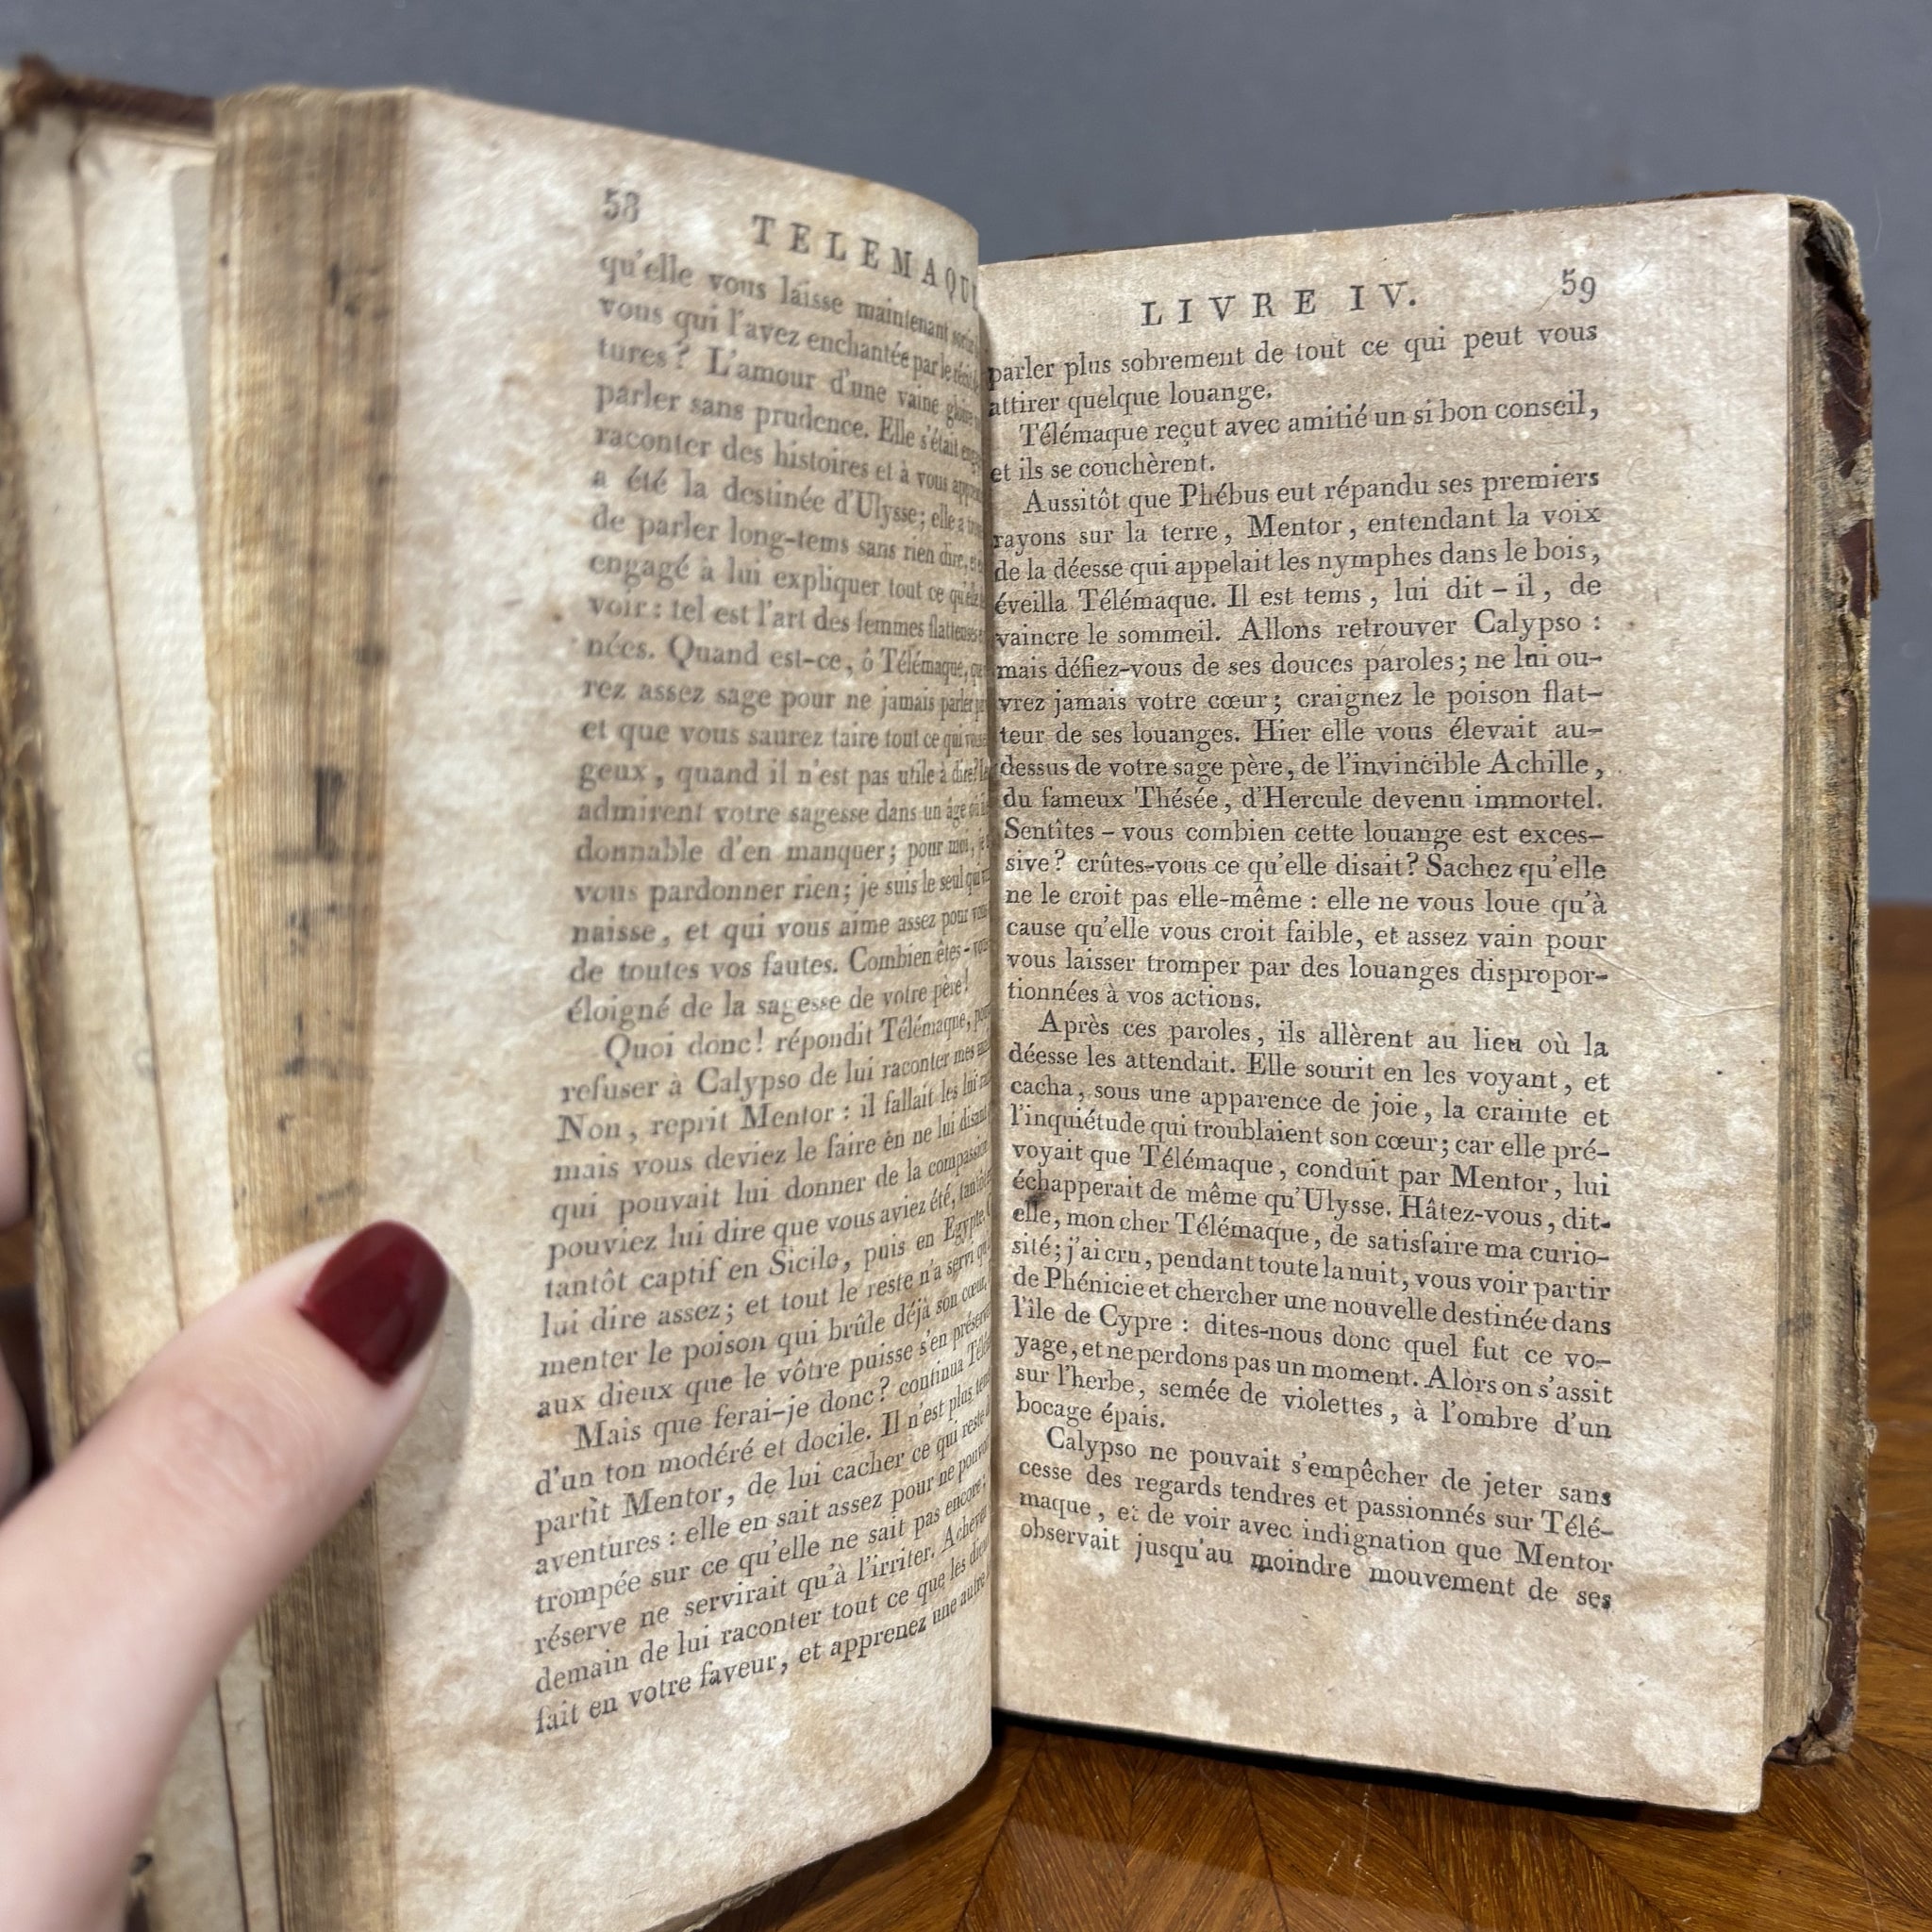 58 TELEMAQUE
qu'elle vous laisse maintenant
vous qui l'avez enchantée par le
tures? L'amour d'une vaine
parler sans prudence. Elle s'était
raconter des histoires et à vous
a été la destinée d'Ulysse; elle a
de parler long-tems sans rien dire,
engagé à lui expliquer tout ce
voir: tel est l'art des femmes flatteuses
nées. Quand est-ce, ô Télémaque,
rez assez sage pour ne jamais parler
et que vous saurez taire tout ce qui vous
geux, quand il n'est pas utile à dire?
admirent votre sagesse dans un âge
donnable d'en manquer; pour moi,
vous pardonner rien; je suis le seul qui
naisse, et qui vous aime assez pour
de toutes vos fautes. Combien êtes-vous
éloigné de la sagesse de votre père!
Quoi donc! répondit Télémaque,
refuser à Calypso de lui raconter mes
Non, reprit Mentor: il fallait les lui
mais vous deviez le faire en ne lui disant
qui pouvait lui donner de la compassion.
pouviez lui dire que vous aviez été, tantôt
tantôt captif en Sicile, puis en Egypte.
lui dire assez; et tout le reste n'a servi
menter le poison qui brûle déjà son cœur.
aux dieux que le vôtre puisse s'en
Mais que ferai-je donc? continua
d'un ton modéré et docile. Il n'est plus
partit Mentor, de lui cacher ce qui reste
aventures: elle en sait assez pour ne
trompée sur ce qu'elle ne sait pas encore;
réserve ne servirait qu'à l'irriter. Achevez
demain de lui raconter tout ce que les
fait en votre faveur, et apprenez une autre
LIVRE IV. 59
parler plus sobrement de tout ce qui peut vous
attirer quelque louange.
Télémaque reçut avec amitié un si bon conseil,
et ils se couchèrent.
Aussitôt que Phébus eut répandu ses premiers
rayons sur la terre, Mentor, entendant la voix
de la déesse qui appelait les nymphes dans le bois,
éveilla Télémaque. Il est tems, lui dit-il, de
vaincre le sommeil. Allons retrouver Calypso:
mais défiez-vous de ses douces paroles; ne lui ou-
vrez jamais votre cœur; craignez le poison flat-
teur de ses louanges. Hier elle vous élevait au-
dessus de votre sage père, de l'invincible Achille,
du fameux Thésée, d'Hercule devenu immortel.
Sentîtes-vous combien cette louange est exces-
sive? crûtes-vous ce qu'elle disait? Sachez qu'elle
ne le croit pas elle-même: elle ne vous loue qu'à
cause qu'elle vous croit faible, et assez vain pour
vous laisser tromper par des louanges dispropor-
tionnées à vos actions.
Après ces paroles, ils allèrent au lieu où la
déesse les attendait. Elle sourit en les voyant, et
cacha, sous une apparence de joie, la crainte et
l'inquiétude qui troublaient son cœur; car elle pré-
voyait que Télémaque, conduit par Mentor, lui
échapperait de même qu'Ulysse. Hâtez-vous, dit-
elle, mon cher Télémaque, de satisfaire ma curio-
sité; j'ai cru, pendant toute la nuit, vous voir partir
de Phénicie et chercher une nouvelle destinée dans
l'île de Cypre: dites-nous donc quel fut ce vo-
yage, et ne perdons pas un moment. Alors on s'assit
sur l'herbe, semée de violettes, à l'ombre d'un
bocage épais.
Calypso ne pouvait s'empêcher de jeter sans
cesse des regards tendres et passionnés sur Télé-
maque, et de voir avec indignation que Mentor
observait jusqu'au moindre mouvement de ses